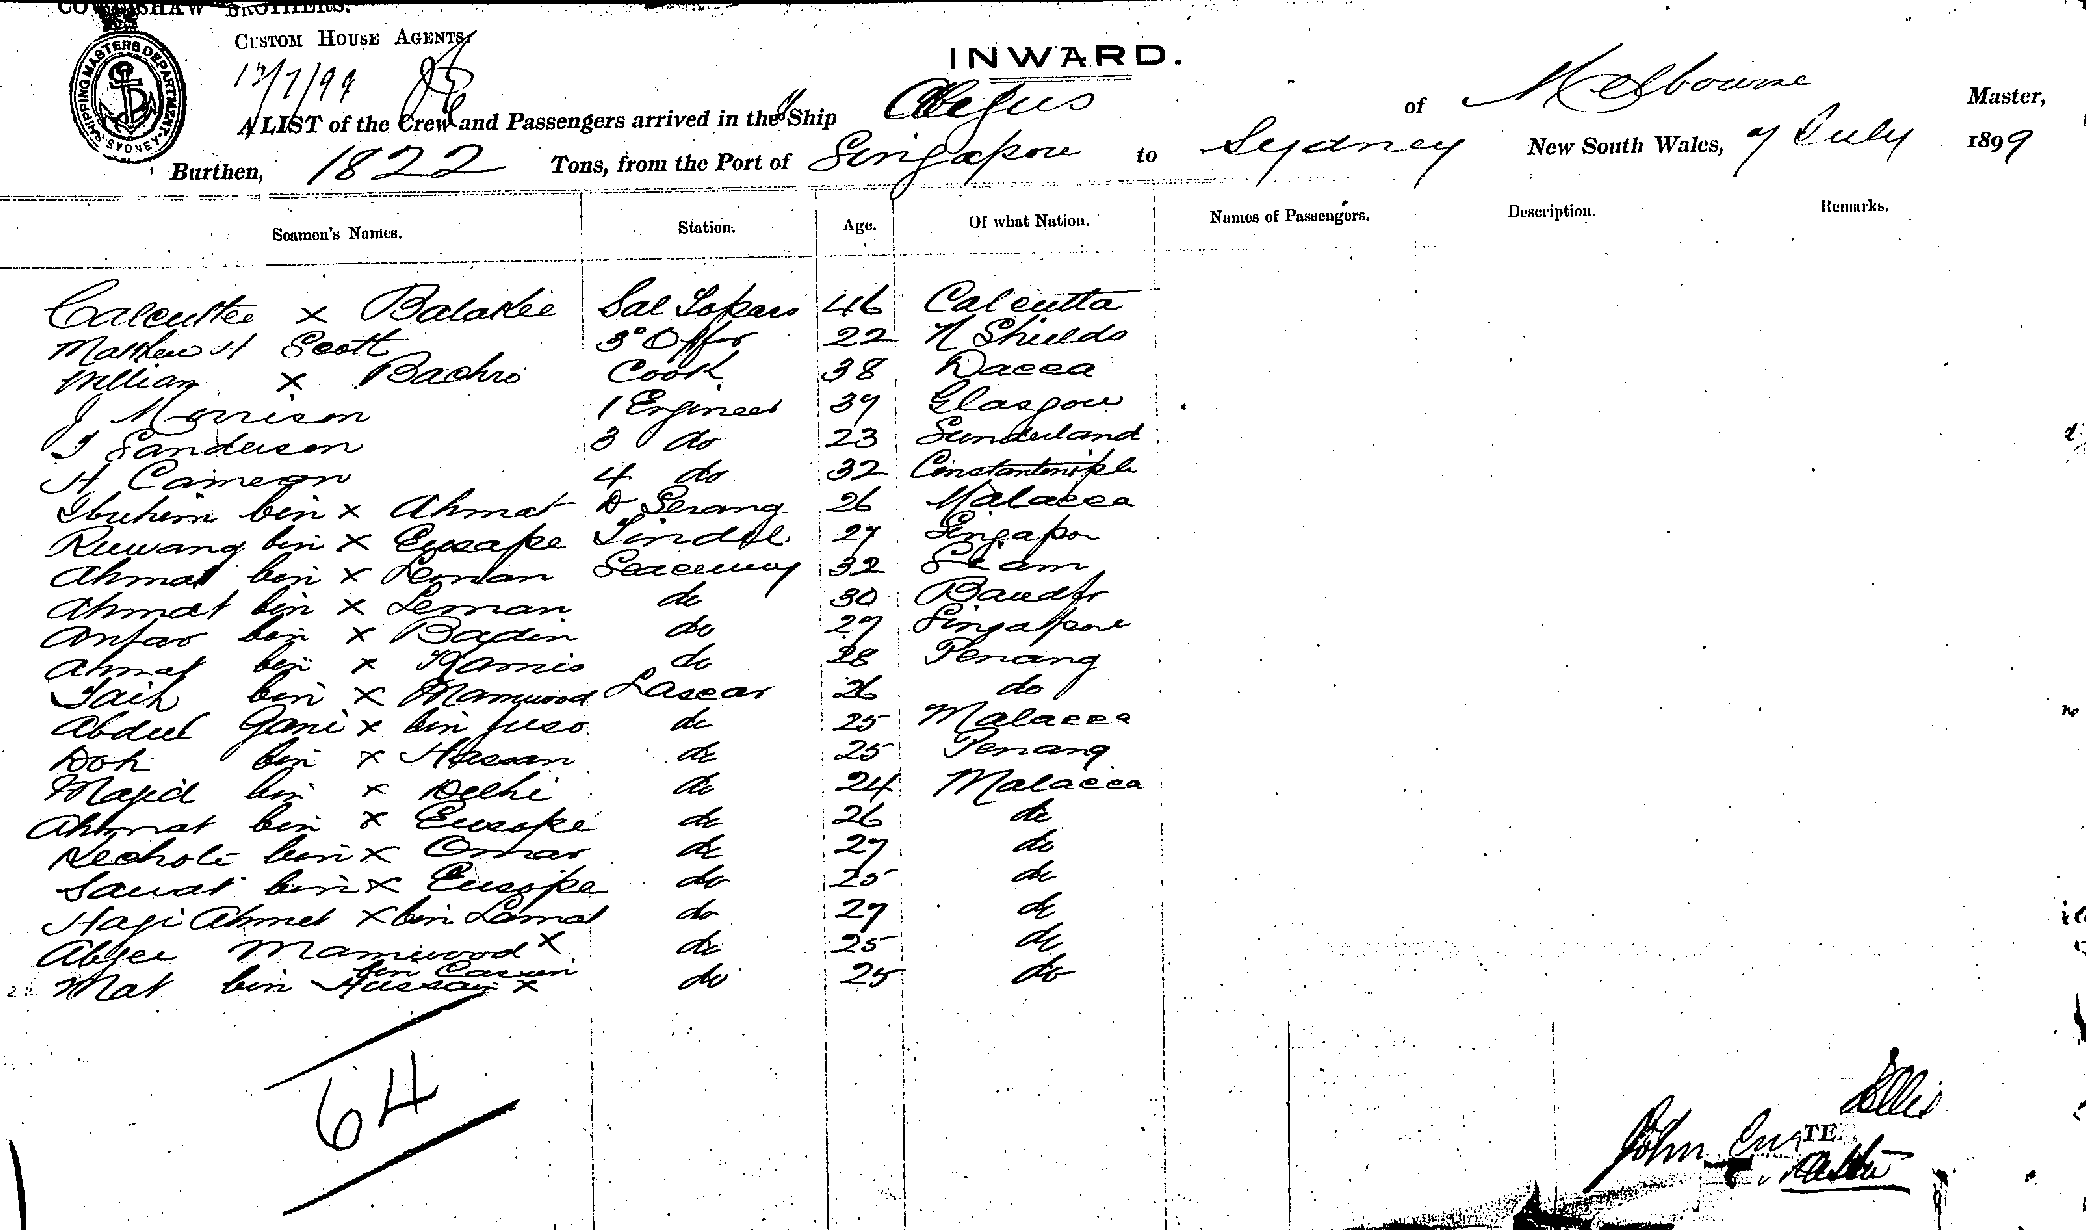 BROTHERS.
CUSTOM HOUSE AGENTS
SHIPPING MASTERS DEPARTMENT SYDNEY
INWARD.
A LIST of the Crew and Passengers arrived in the Ship of Melbourne Master,
Burthen, 1822 Tons, from the Port of Singapore to Sydney New South Wales, 7 July 1899
Seamen's Names. Station. Age. Of what Nation. Names of Passengers. Description. Remarks.
Calcuttee x Balakee 46 Calcutta
Matthew H Scott 3º Offr 22 N Shields
William x Bachro Cook 38 Dacca
J Morrison 1 Engineer 39 Glasgow
J Sanderson 3 do 23 Sunderland
H Cameron 4 do 32 Constantinople
Ibrihim bin x Ahmat D Serang 26 Malacca
Ruwang bin x Eusape Tindal 27 Singapor
Ahmat bin x Leman 32 Siam
Ahmat bin x Leman do 30
bin x Badin do 27 Singapore
Ahmat bin x Ramis do 28 Penang
Taih bin x Mamwood Lascar 26 do
Abdul Gani x bin Juso do 25 Malacca
Doh bin x Hassan do 25 Penang
Majid bin x Delhi do 24 Malacca
Ahmat bin x Eusope do 26 do
bin x Omar do 27 do
Sawat bin x Eusope do 25 do
Haji Ahmet x bin Lamat do 27 do
Mamwood x do 25 do
bin Cassin
Mat bin Hussain x do 25 do
64
Ellis
John
TE.